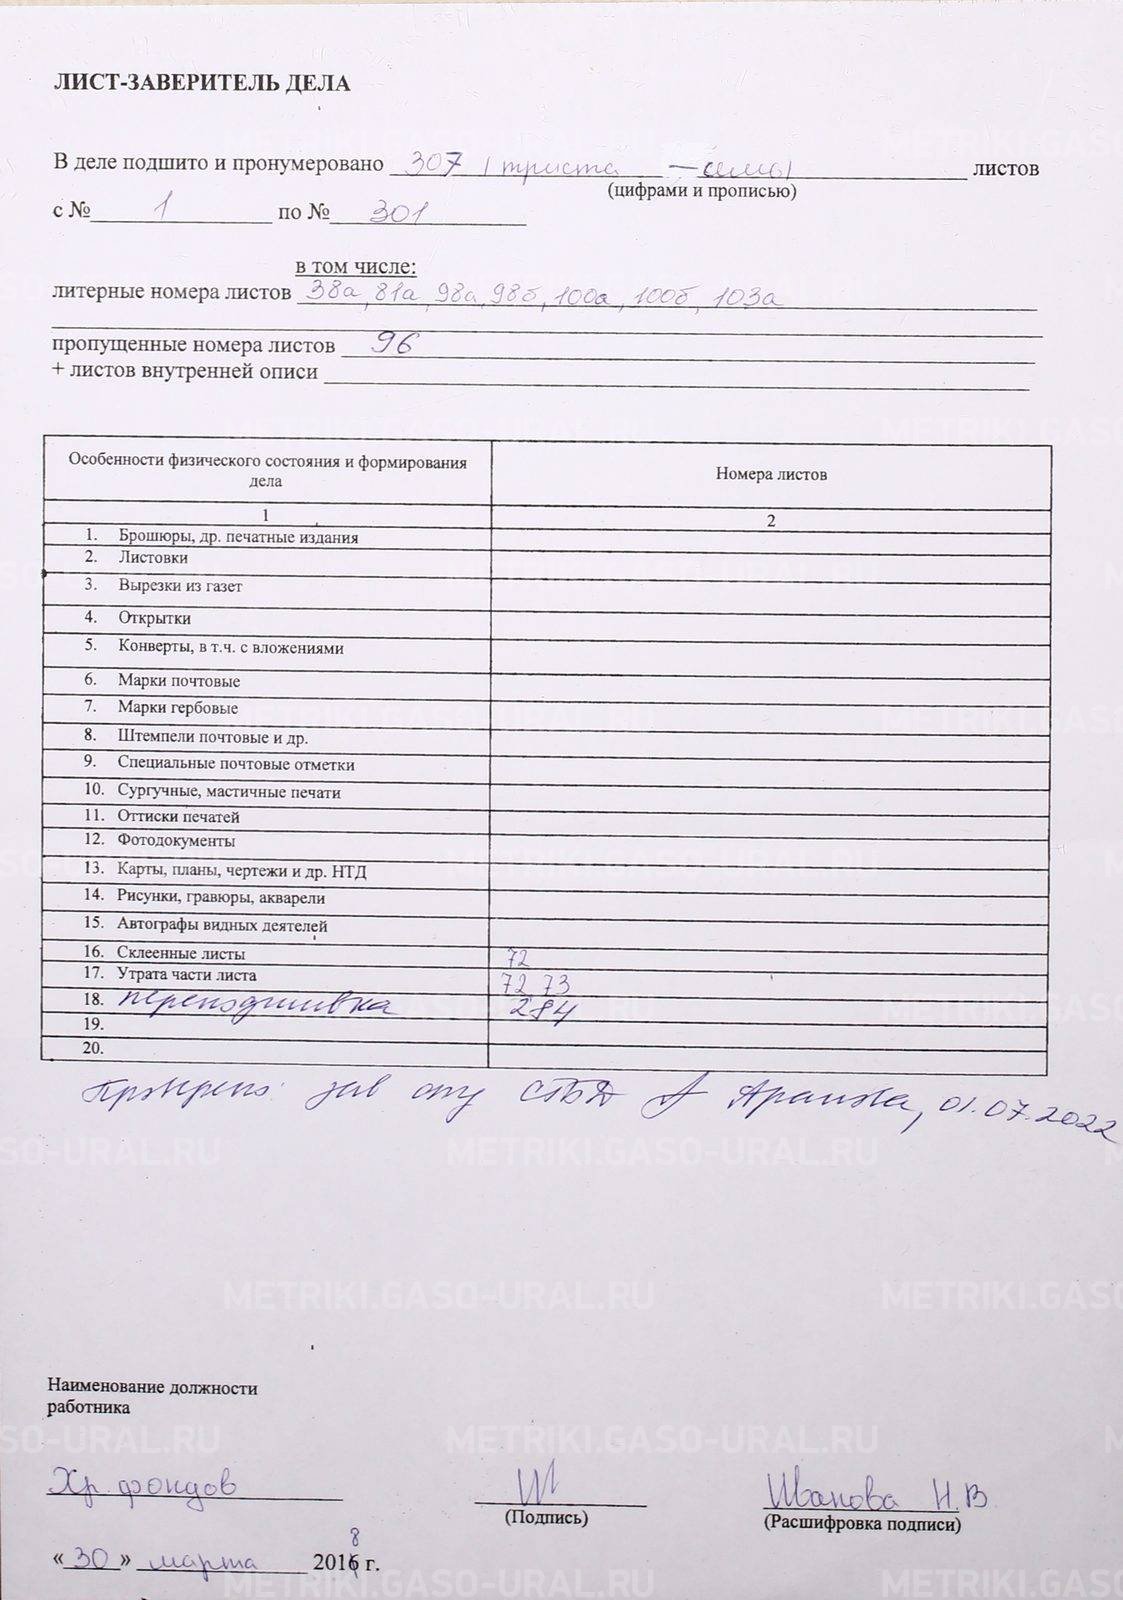 ЛИСТ-ЗАВЕРИТЕЛЬ ДЕЛА
В деле подшито и пронумеровано 307 (триста семь) листов
(цифрами и прописью)
с № 1 по № 301
в том числе:
литерные номера листов 38а, 81а, 98а, 98б, 100а, 100б, 103а
пропущенные номера листов 96
+ листов внутренней описи
Особенности физического состояния и формирования дела Номера листов
1 2
1. Брошюры, др. печатные издания
2. Листовки
3. Вырезки из газет
4. Открытки
5. Конверты, в т.ч. с вложениями
6. Марки почтовые
7. Марки гербовые
8. Штемпели почтовые и др.
9. Специальные почтовые отметки
10. Сургучные, мастичные печати
11. Оттиски печатей
12. Фотодокументы
13. Карты, планы, чертежи и др. НТД
14. Рисунки, гравюры, акварели
15. Автографы видных деятелей
16. Склеенные листы 72
17. Утрата части листа 72 73
18. переподшивка 284
19.
20.
зав СТБД 01.07.2022
Наименование должности
работника
Хр. фондов Иванова Н.В.
(Подпись) (Расшифровка подписи)
«30» марта 2018 г.
METRIKI.GASO-URAL.RU